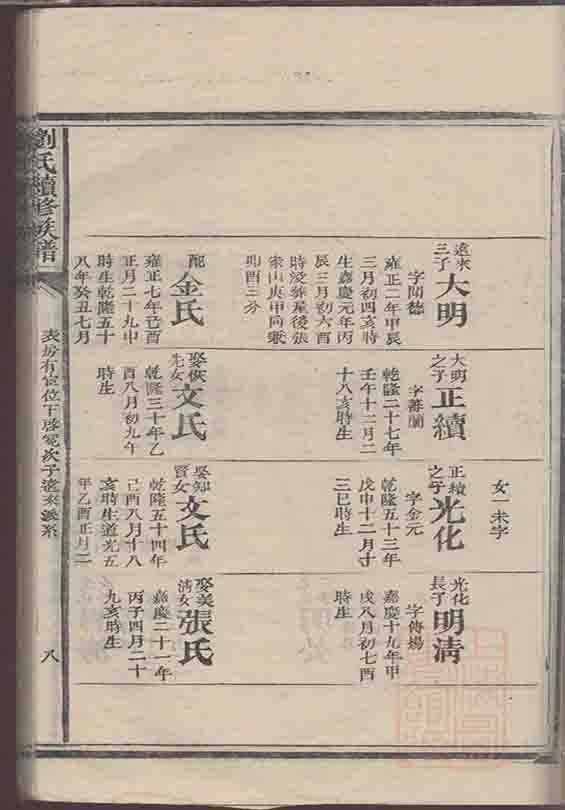 劉氏續修族譜
遠來
三子
大明
字聞德
雍正二年甲辰
三月初四亥時
生嘉慶元年丙
辰三月初六酉
時沒葬屋後張
家山庚甲向
卯酉三分
配
金氏
雍正七年己酉
正月二十九申
時生乾隆五十
八年癸丑七月
大明
之子
正續
字蕃蘭
乾隆二十七年
壬午十二月二
十八亥時生
娶
先女
文氏
乾隆三十年乙
酉八月初九午
時生
女一未字
正續
之子
光化
字金元
乾隆五十三年
戊申十二月廿
三巳時生
娶知
賢女
文氏
乾隆五十四年
己酉八月十八
亥時生道光五
年乙酉正月二
光化
長子
明清
字傳揚
嘉慶十九年甲
戌八月初七酉
時生
娶美
清女
張氏
嘉慶二十一年
丙子四月二十
九亥時生
表房有官位下啓冕次子遠來派系
八